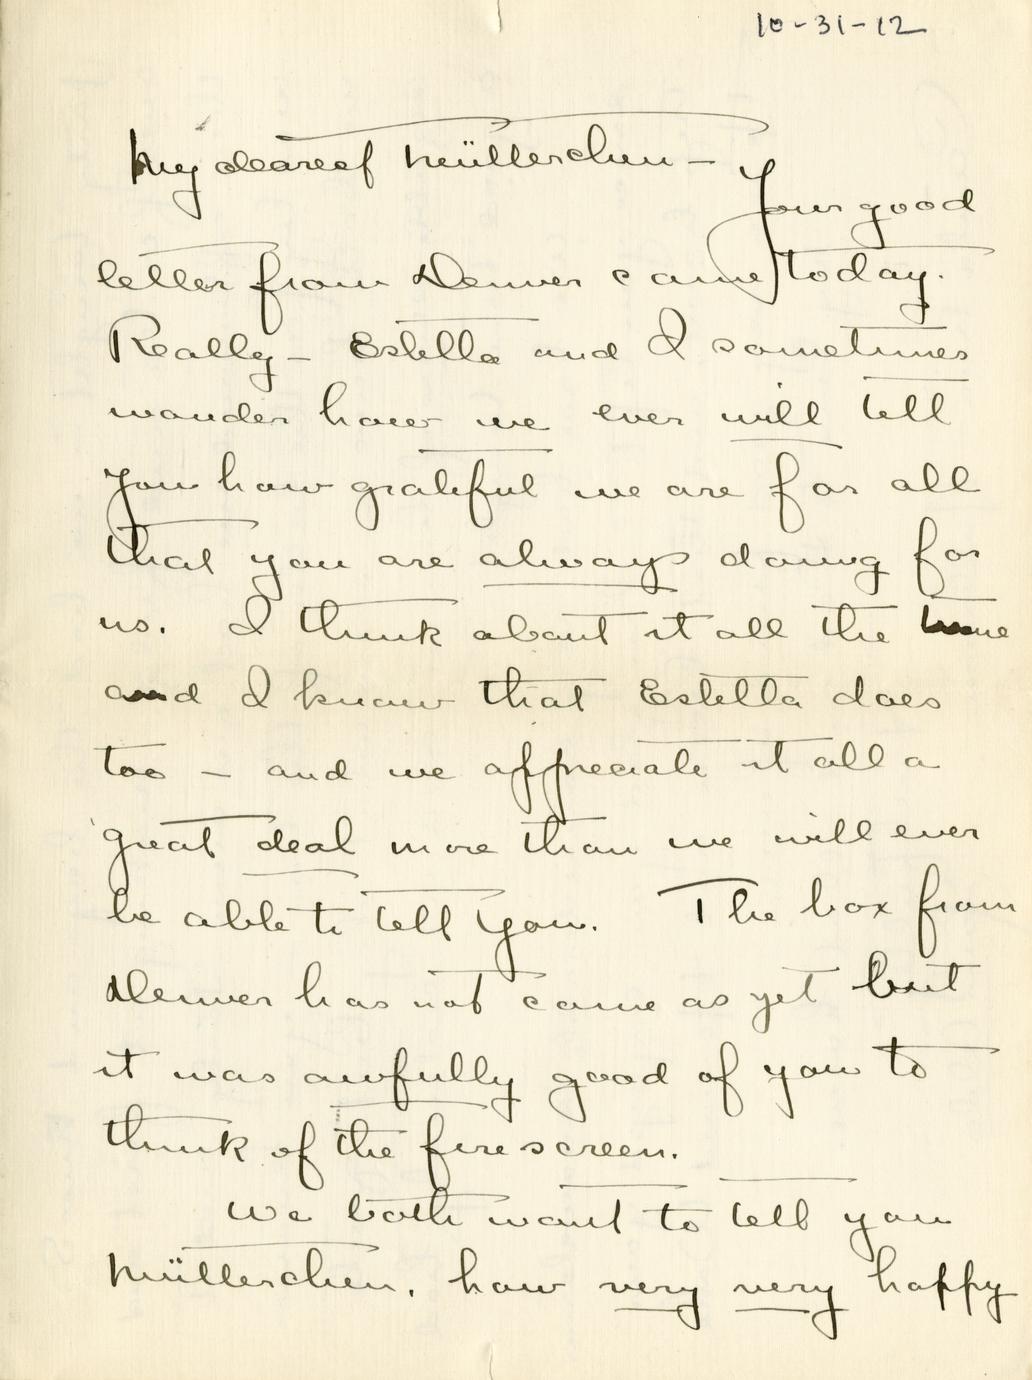 10-31-12
My dearest Mütterchen –
Your good
letter from Denver came today.
Really – Estella and I sometimes
wonder how we ever will tell
you how grateful we are for all
that you are always doing for
us. I think about it all the time
and I know that Estella does
too – and we appreciate it all a
great deal more than we will ever
be able to tell you. The box from
Denver has not come as yet but
it was awfully good of you to
think of the fire screen.
We both want to tell you
Mütterchen, how very very happy